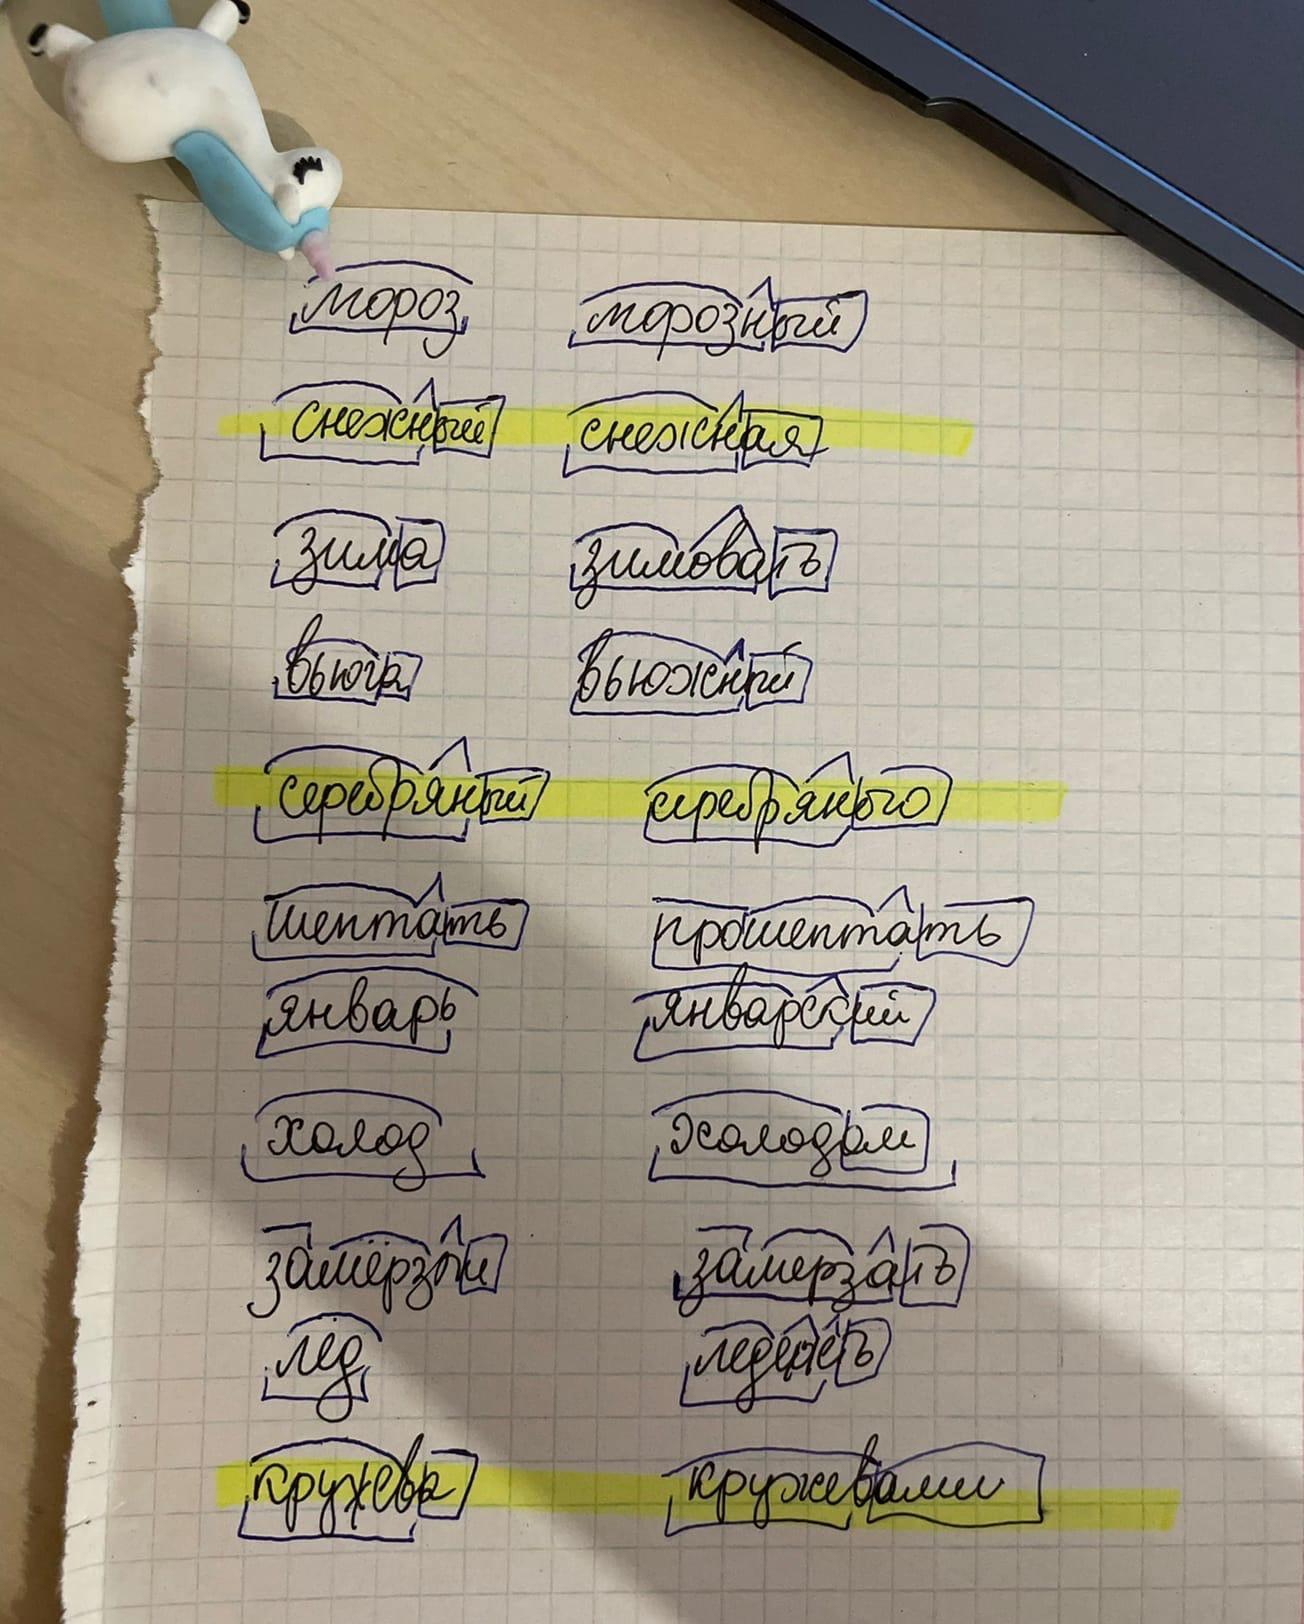 мороз морозный
снежный снежная
зима зимовать
вьюга вьюжный
серебряный серебряного
шептать прошептать
январь январский
холод холодом
замёрзли замерзать
лед леденеть
кружева кружевами